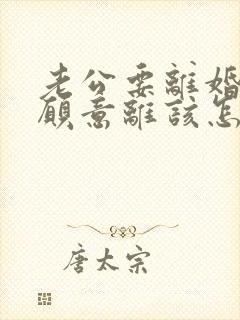 老公要離婚
願意離該怎
唐太宗